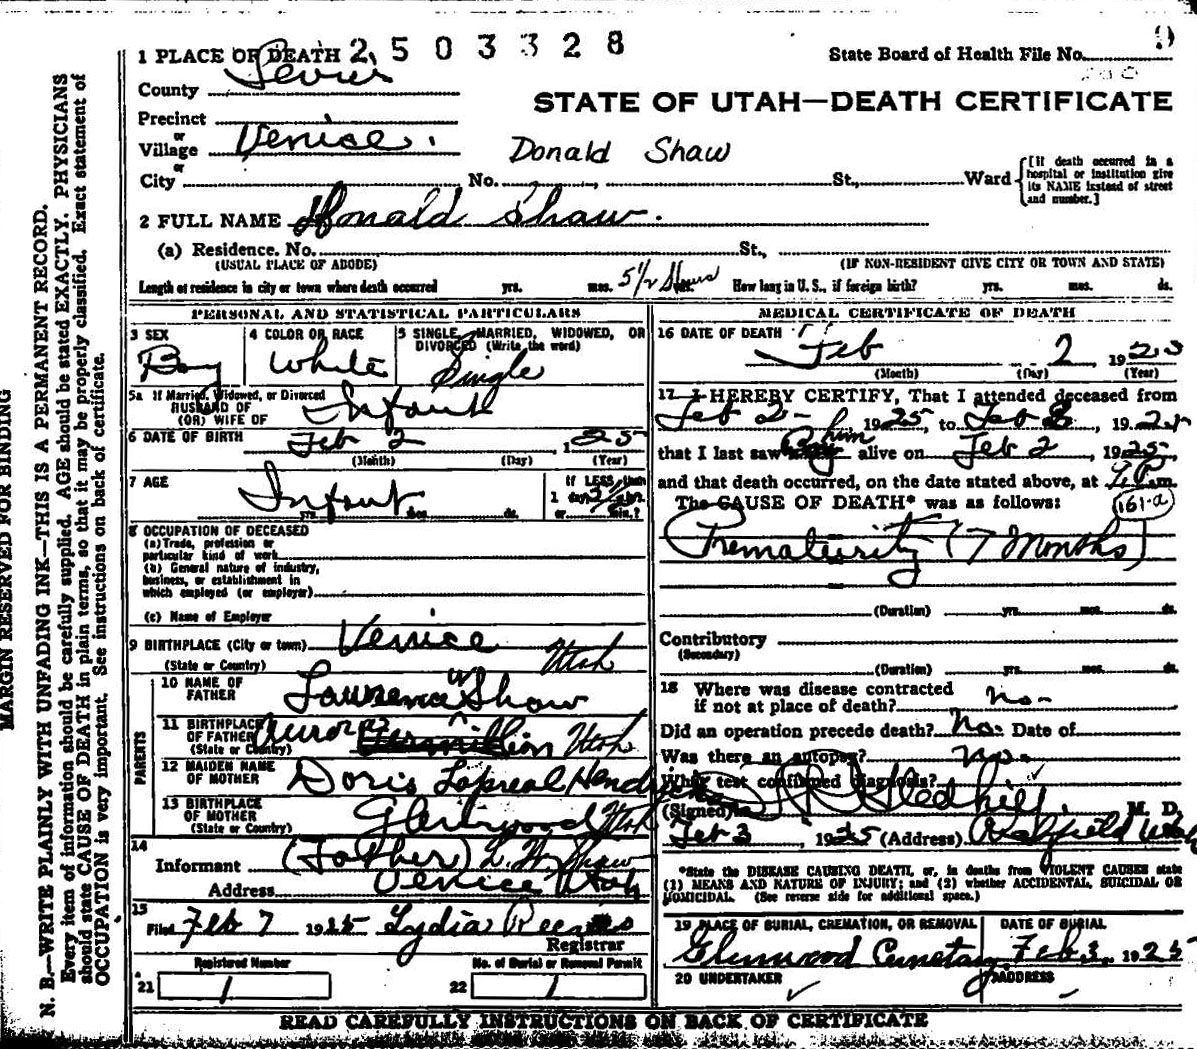 MARGIN RESERVED FOR BINDING
N. B.—WRITE PLAINLY WITH UNFADING INK—THIS IS A PERMANENT RECORD.
Every item of information should be carefully supplied. AGE should be stated EXACTLY. PHYSICIANS
should state CAUSE OF DEATH in plain terms, so that it may be properly classified. Exact statement of
OCCUPATION is very important. See instructions on back of certificate.
1 PLACE OF DEATH 2503328
State Board of Health File No.
County Sevier
STATE OF UTAH—DEATH CERTIFICATE
Precinct
or
Village Venice.
Donald Shaw
or
City No. St., Ward
[If death occurred in a
hospital or institution give
its NAME instead of street
and number.]
2 FULL NAME Donald Shaw.
(a) Residence. No. St.,
(USUAL PLACE OF ABODE) (IF NON-RESIDENT GIVE CITY OR TOWN AND STATE)
Length of residence in city or town where death occurred yrs. mos. 5 1/2 Hours How long in U. S., if foreign birth? yrs. mos. ds.
PERSONAL AND STATISTICAL PARTICULARS
3 SEX
Boy
4 COLOR OR RACE
White
5 SINGLE, MARRIED, WIDOWED, OR
DIVORCED (Write the word)
Single
5a If Married, Widowed, or Divorced
HUSBAND OF
(OR) WIFE OF Infant
6 DATE OF BIRTH Feb 2 1925
(Month) (Day) (Year)
7 AGE Infant
If LESS than
1 day, hrs.
yrs. mos. ds. or min.?
8 OCCUPATION OF DECEASED
(a) Trade, profession or
particular kind of work
(b) General nature of industry,
business, or establishment in
which employed (or employer)
(c) Name of Employer
9 BIRTHPLACE (City or town) Venice
(State or Country) Utah
PARENTS
10 NAME OF
FATHER Lawrence W Shaw
11 BIRTHPLACE
OF FATHER Aurora Utah
(State or Country)
12 MAIDEN NAME
OF MOTHER Doris Lapreal
13 BIRTHPLACE
OF MOTHER Glenwood Utah
(State or Country)
14
Informant (Father) L. W. Shaw
Address Venice Utah
15
Filed Feb 7 1925 Lydia
Registrar
Registered Number
21 1
No. of Burial or Removal Permit
22 1
MEDICAL CERTIFICATE OF DEATH
16 DATE OF DEATH
Feb 2 1925
(Month) (Day) (Year)
17 I HEREBY CERTIFY, That I attended deceased from
Feb 2 - 1925, to Feb 192
that I last saw him alive on Feb 2, 1925,
and that death occurred, on the date stated above, at P.m.
The CAUSE OF DEATH* was as follows: 161-a
Prematurity (7 Months)
(Duration) yrs. mos. ds.
Contributory
(Secondary)
(Duration) yrs. mos. ds.
18 Where was disease contracted
if not at place of death? no-
Did an operation precede death? No. Date of
Was there an autopsy? no.
What test confirmed diagnosis?
(Signed) Gledhill. M. D.
Feb 3, 1925 (Address) Richfield Utah
*State the DISEASE CAUSING DEATH, or, in deaths from VIOLENT CAUSES state
(1) MEANS AND NATURE OF INJURY; and (2) whether ACCIDENTAL, SUICIDAL OR
HOMICIDAL. (See reverse side for additional space.)
19 PLACE OF BURIAL, CREMATION, OR REMOVAL
Glenwood Cemetary
DATE OF BURIAL
Feb 3, 1925
20 UNDERTAKER ADDRESS
READ CAREFULLY INSTRUCTIONS ON BACK OF CERTIFICATE